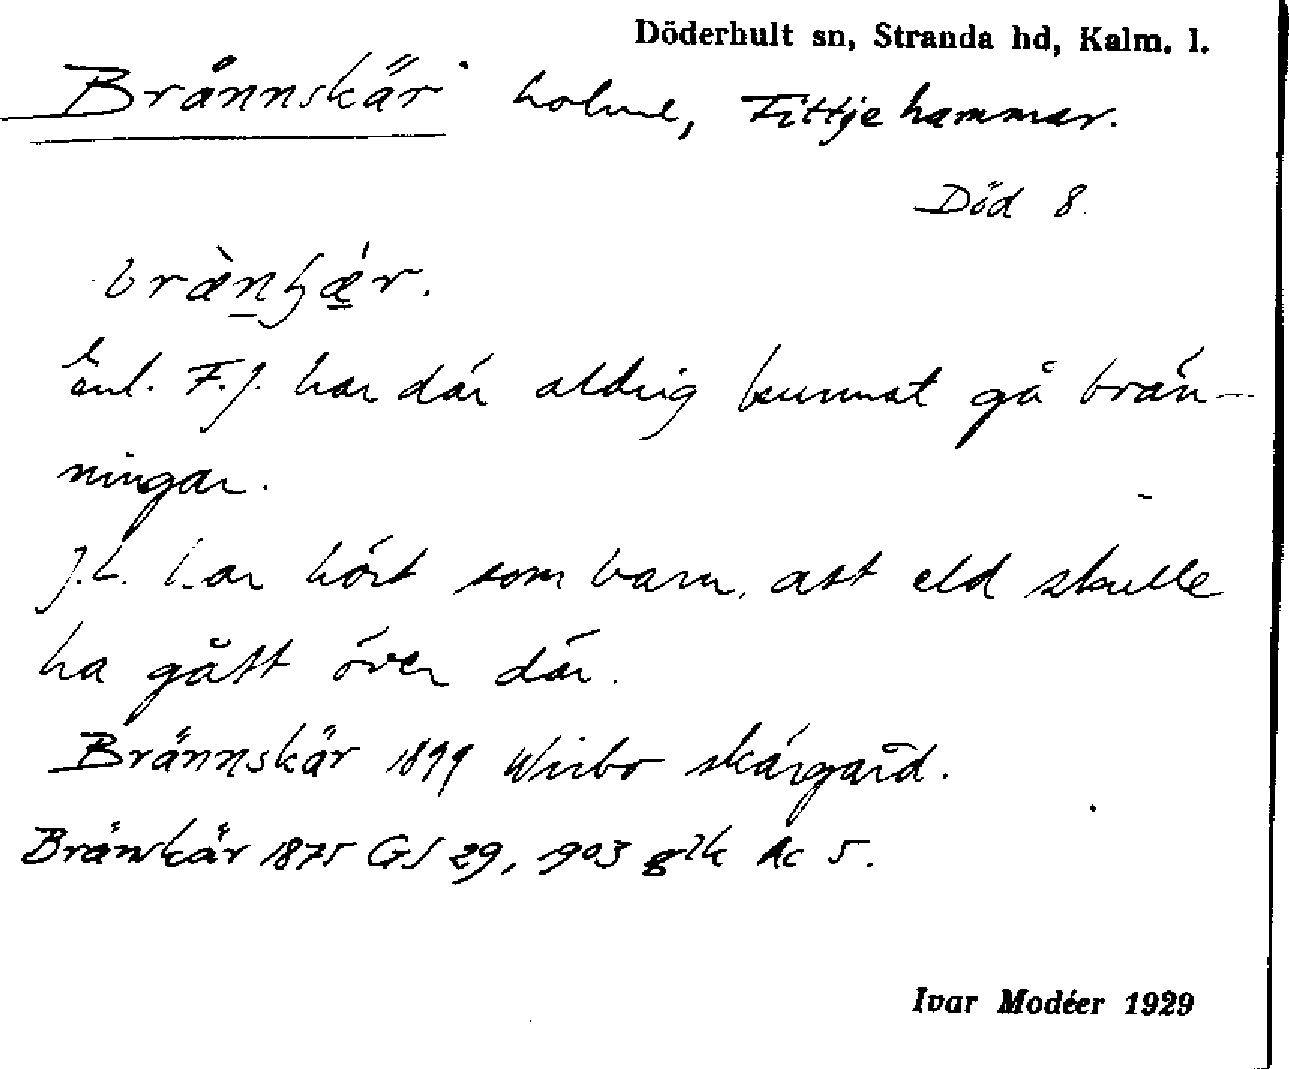 Döderhult sn, Stranda hd, Kalm. l.
Brännskär holme, Fittjehammar.
Död 8.
Enl. F.J. har där aldrig kunnat gå brän-
ningar.
J.L. har hört som barn, att eld skulle
ha gått över där.
Brännskär 1899 Wirbo skärgård.
Bränskär 1875 GS 29, 1903 Ac 5.
Ivar Modéer 1929